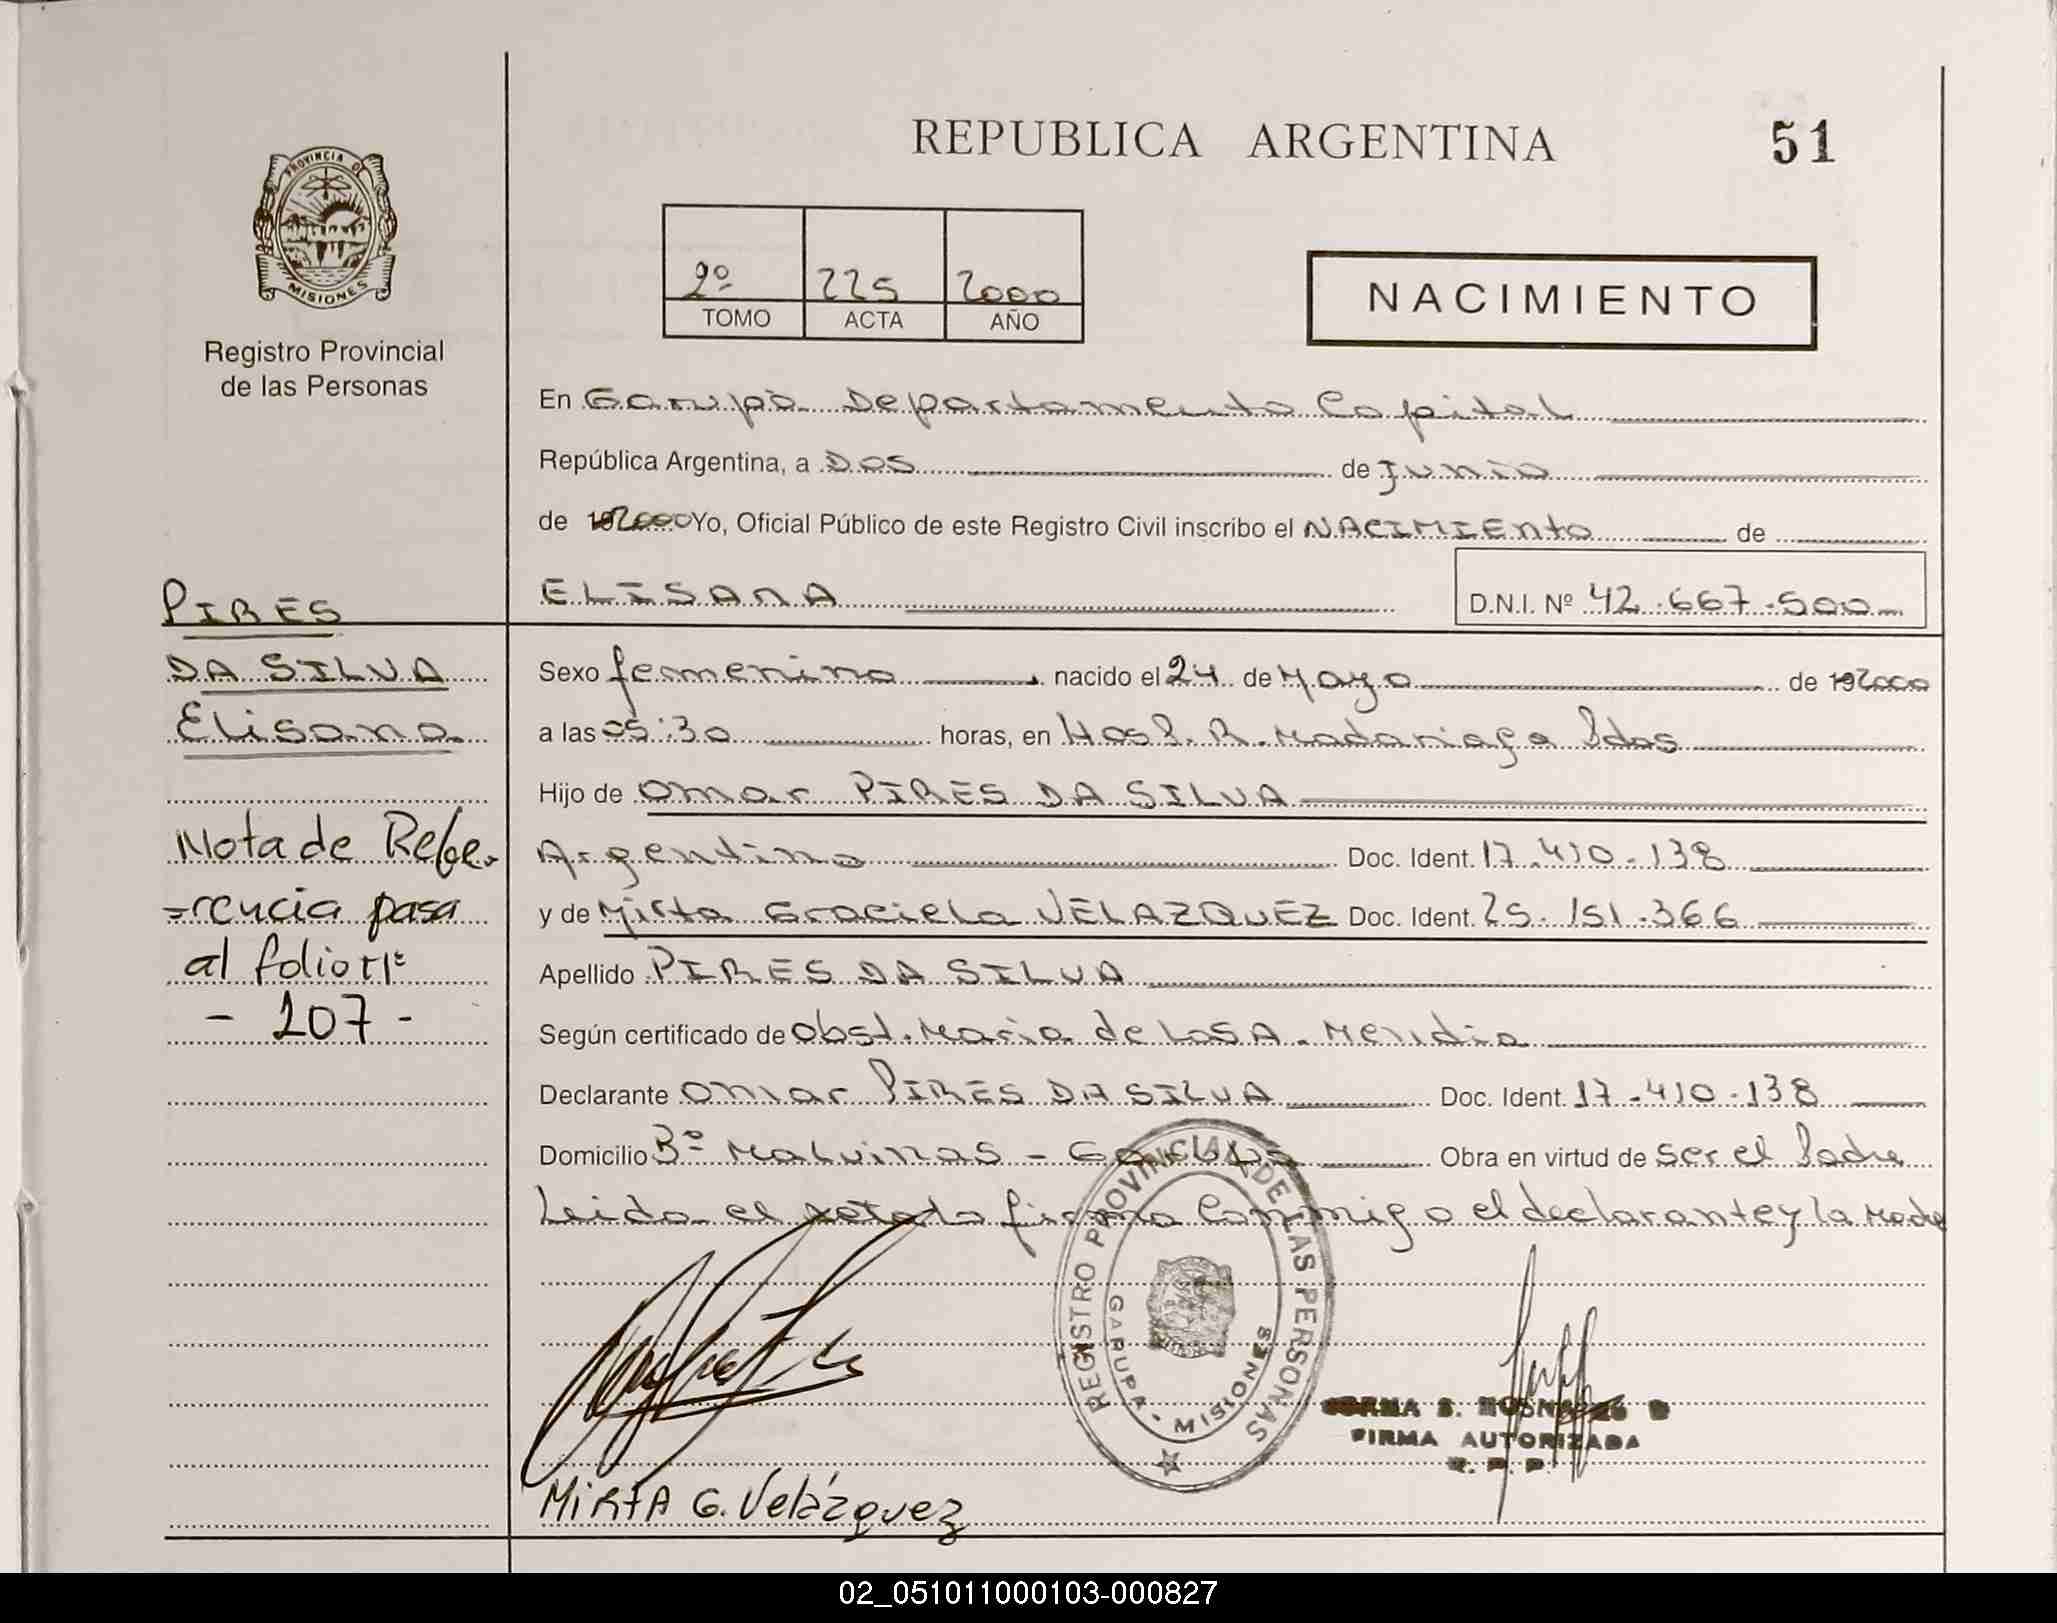 REPUBLICA ARGENTINA
51
PROVINCIA DE
MISIONES
Registro Provincial
de las Personas
2º 225 2000
TOMO ACTA AÑO
NACIMIENTO
En Garupá Departamento Capital
República Argentina, a Dos de Junio
de 192000 Yo, Oficial Público de este Registro Civil inscribo el NACIMIENTO de
ELISANA D.N.I. Nº 42.667.500
PIRES
DA SILVA
Elisana
Nota de Refe-
-rencia pasa
al folio nº
- 107 -
Sexo femenino, nacido el 24 de Mayo de 192000
a las 05:30 horas, en Hosp. R. Madariaga Pdas
Hijo de Omar PIRES DA SILVA
Argentino Doc. Ident. 17.410.138
y de Mirta Graciela VELAZQUEZ Doc. Ident. 25.151.366
Apellido PIRES DA SILVA
Según certificado de Obst. Maria de Los A. Mendia
Declarante Omar PIRES DA SILVA Doc. Ident. 17.410.138
Domicilio Bº Malvinas - Garupá Obra en virtud de ser el Padre
Leida el acta la firma conmigo el declarante y la Madre
REGISTRO PROVINCIAL DE LAS PERSONAS
GARUPA - MISIONES
FIRMA AUTORIZADA
R. P. P.
MIRTA G. Velázquez
02_051011000103-000827